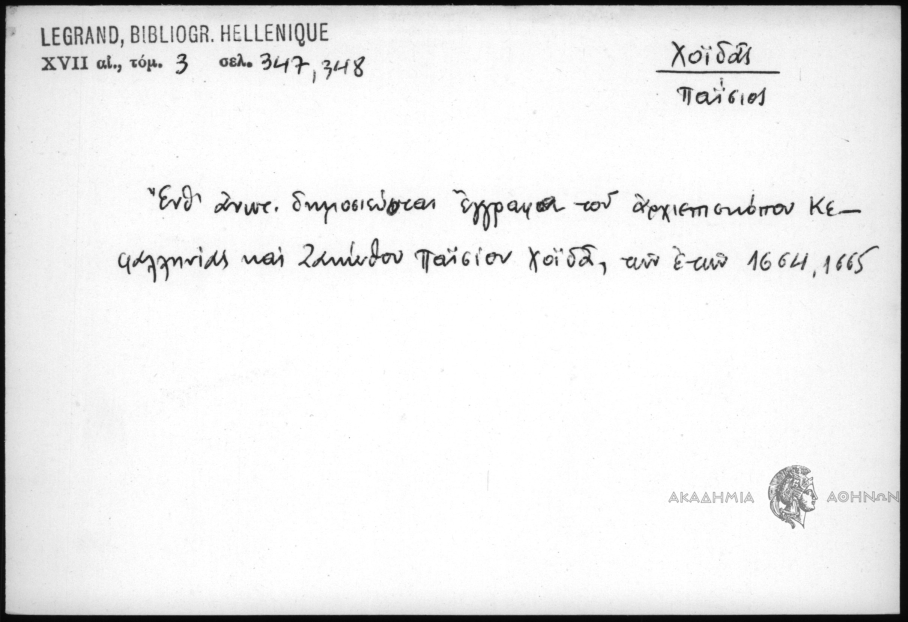 LEGRAND, BIBLIOGR. HELLENIQUE
XVII αἰ., τόμ. 3 σελ. 347, 348
Χοϊδᾶς
Παΐσιος
Ἔνθ' ἀνωτ. δημοσιεύονται ἔγγραφα τοῦ ἀρχιεπισκόπου Κε-
φαλληνίας καὶ Ζακύνθου Παϊσίου Χοϊδᾶ, τῶν ἐτῶν 1664, 1665
ΑΚΑΔΗΜΙΑ ΑΘΗΝΩΝ